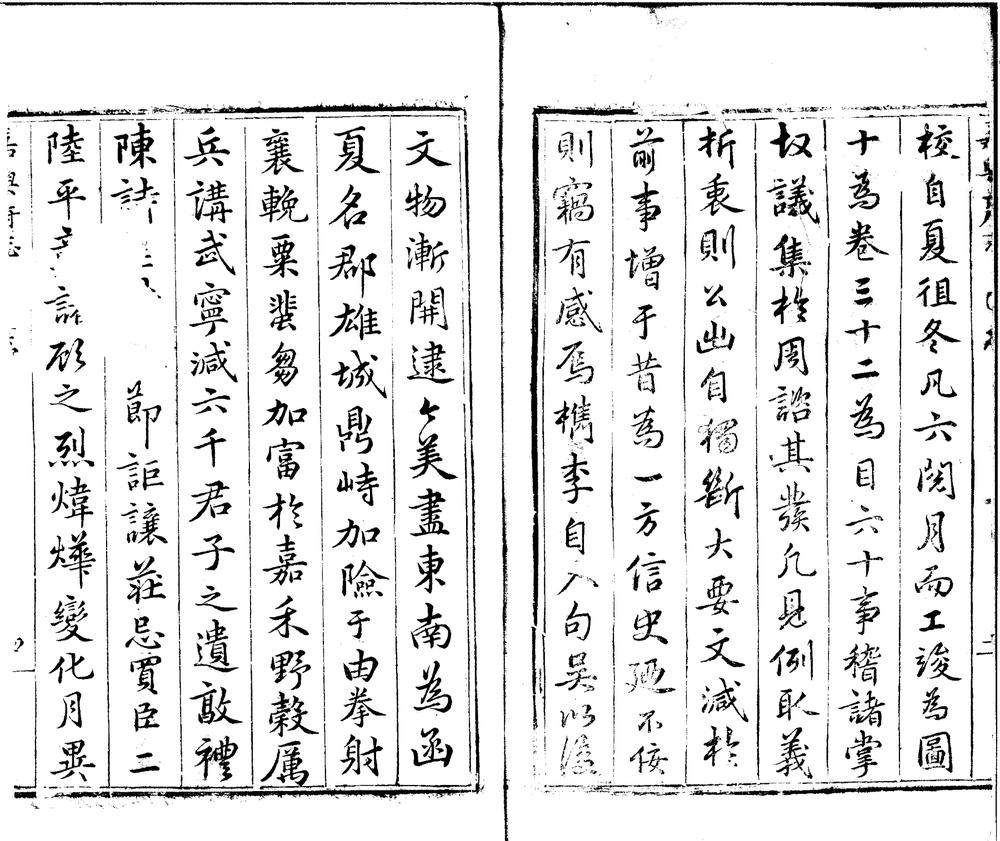 校自夏徂冬凡六閱月而工竣為圖
十為卷三十二為目六十事稽諸掌
故議集於周諮其發凡見例取義
折衷則公幽自獨斷大要文減於
前事增于昔為一方信史廼不佞
則竊有感焉檇李自入句吳以後
文物漸開逮今美盡東南為函
夏名郡雄城鼎峙加險于由拳射
襄輓粟蜚芻加富於嘉禾野穀厲
兵講武寧減六千君子之遺敵禮
陳詩 節詎讓莊忌買臣二
陸平 之烈煒燁變化月異
嘉興府志